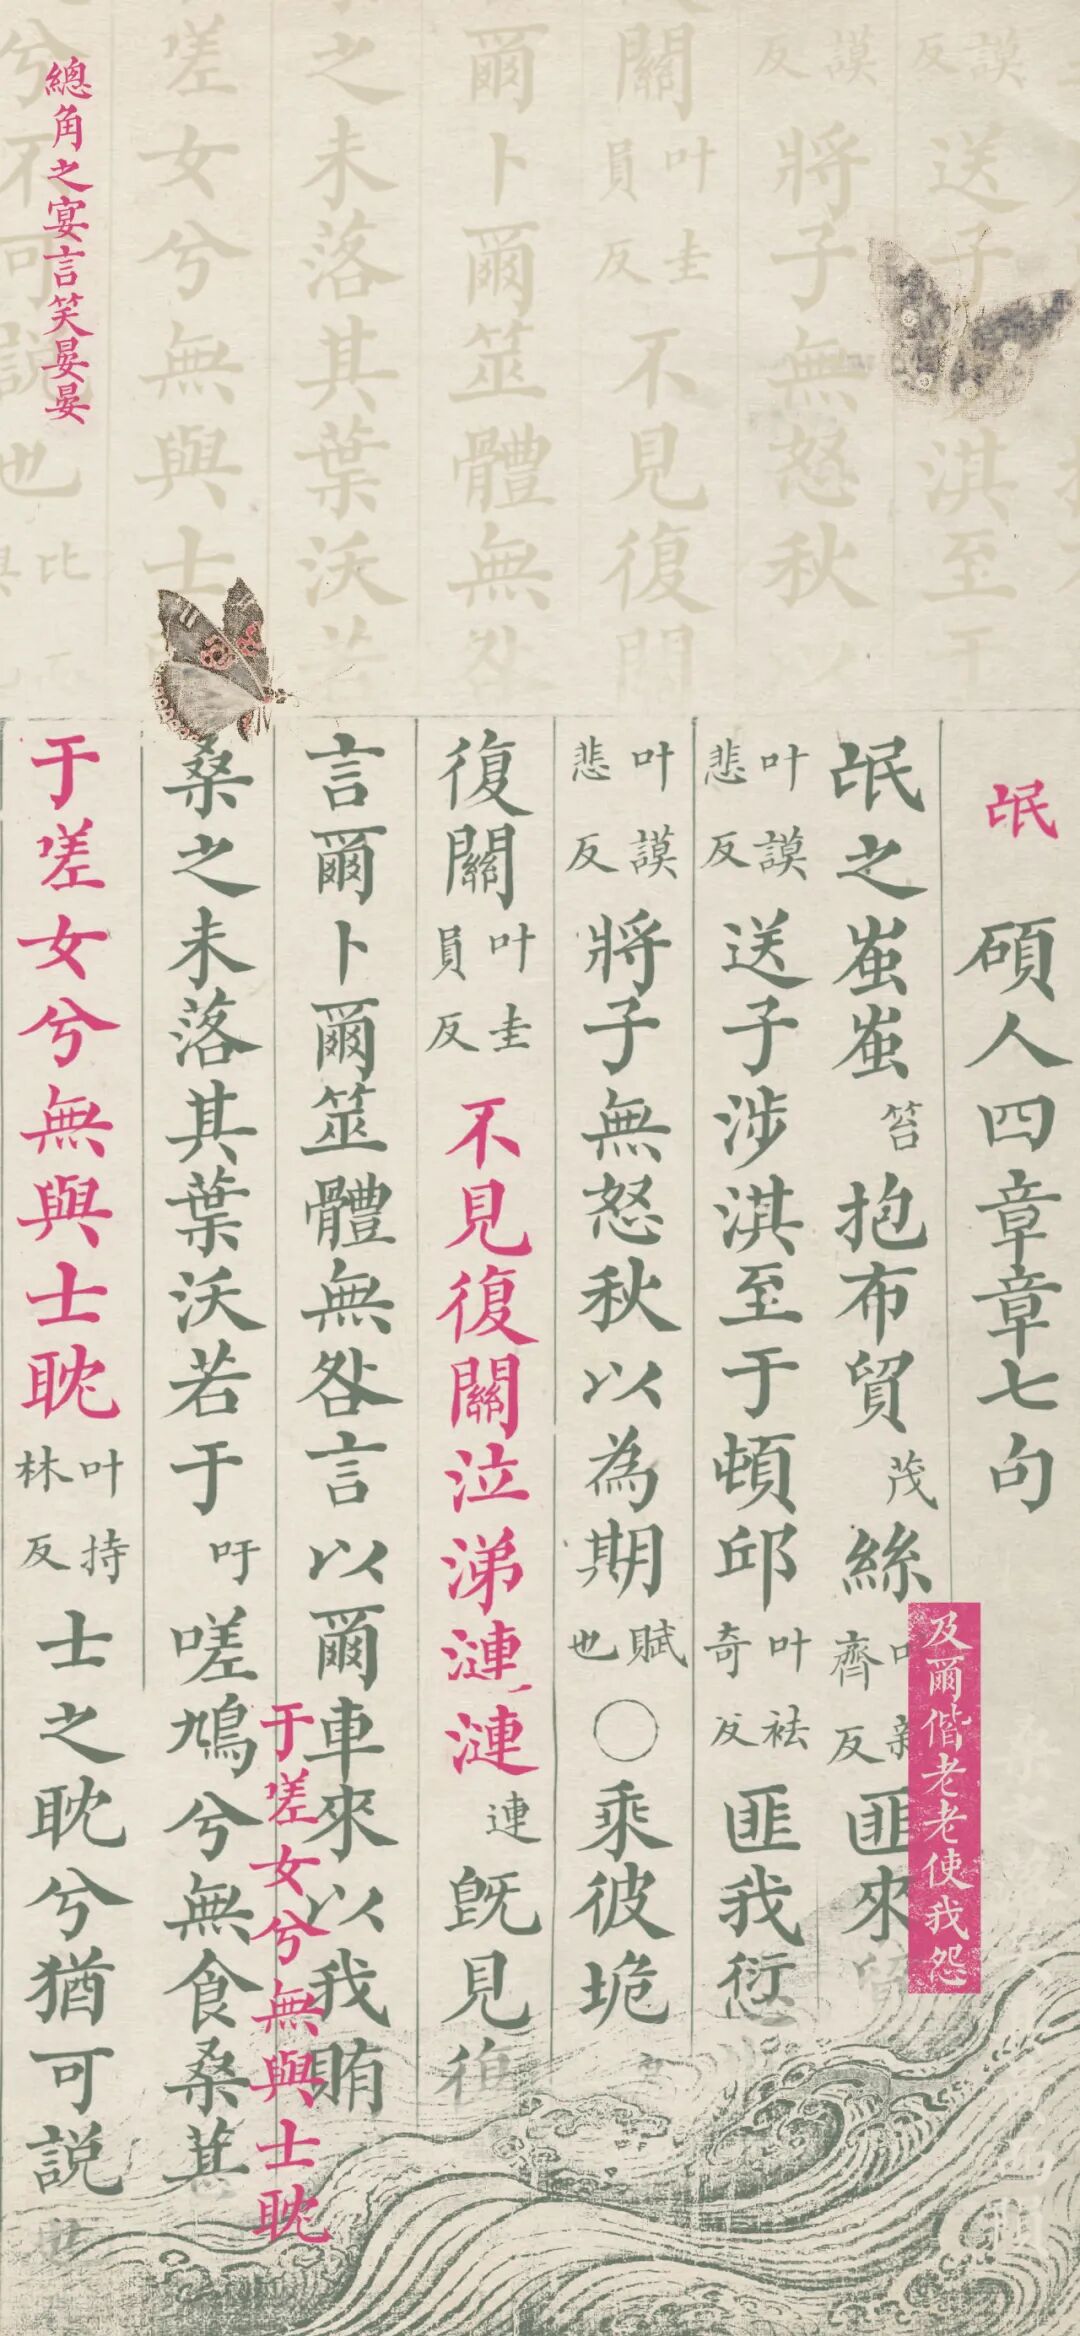 總角之宴言笑晏晏
謨反送子 淇至于
叶謨反將子無怒秋以
關叶圭員反不見復關
爾卜爾筮體無咎
之未落其葉沃若
嗟女兮無與士
兮不可說也 比
氓
碩人四章章七句
氓之蚩蚩笞抱布貿茂絲 齊反匪來貿
叶謨悲反送子涉淇至于頓邱叶袪奇反匪我愆
叶謨悲反將子無怒秋以為期賦也○乘彼垝
復關叶圭員反不見復關泣涕漣漣連既見復
言爾卜爾筮體無咎言以爾車來以我賄
桑之未落其葉沃若于吁嗟鳩兮無食桑葚
于嗟女兮無與士耽叶持林反士之耽兮猶可說
及爾偕老老使我怨
于嗟女兮無與士耽